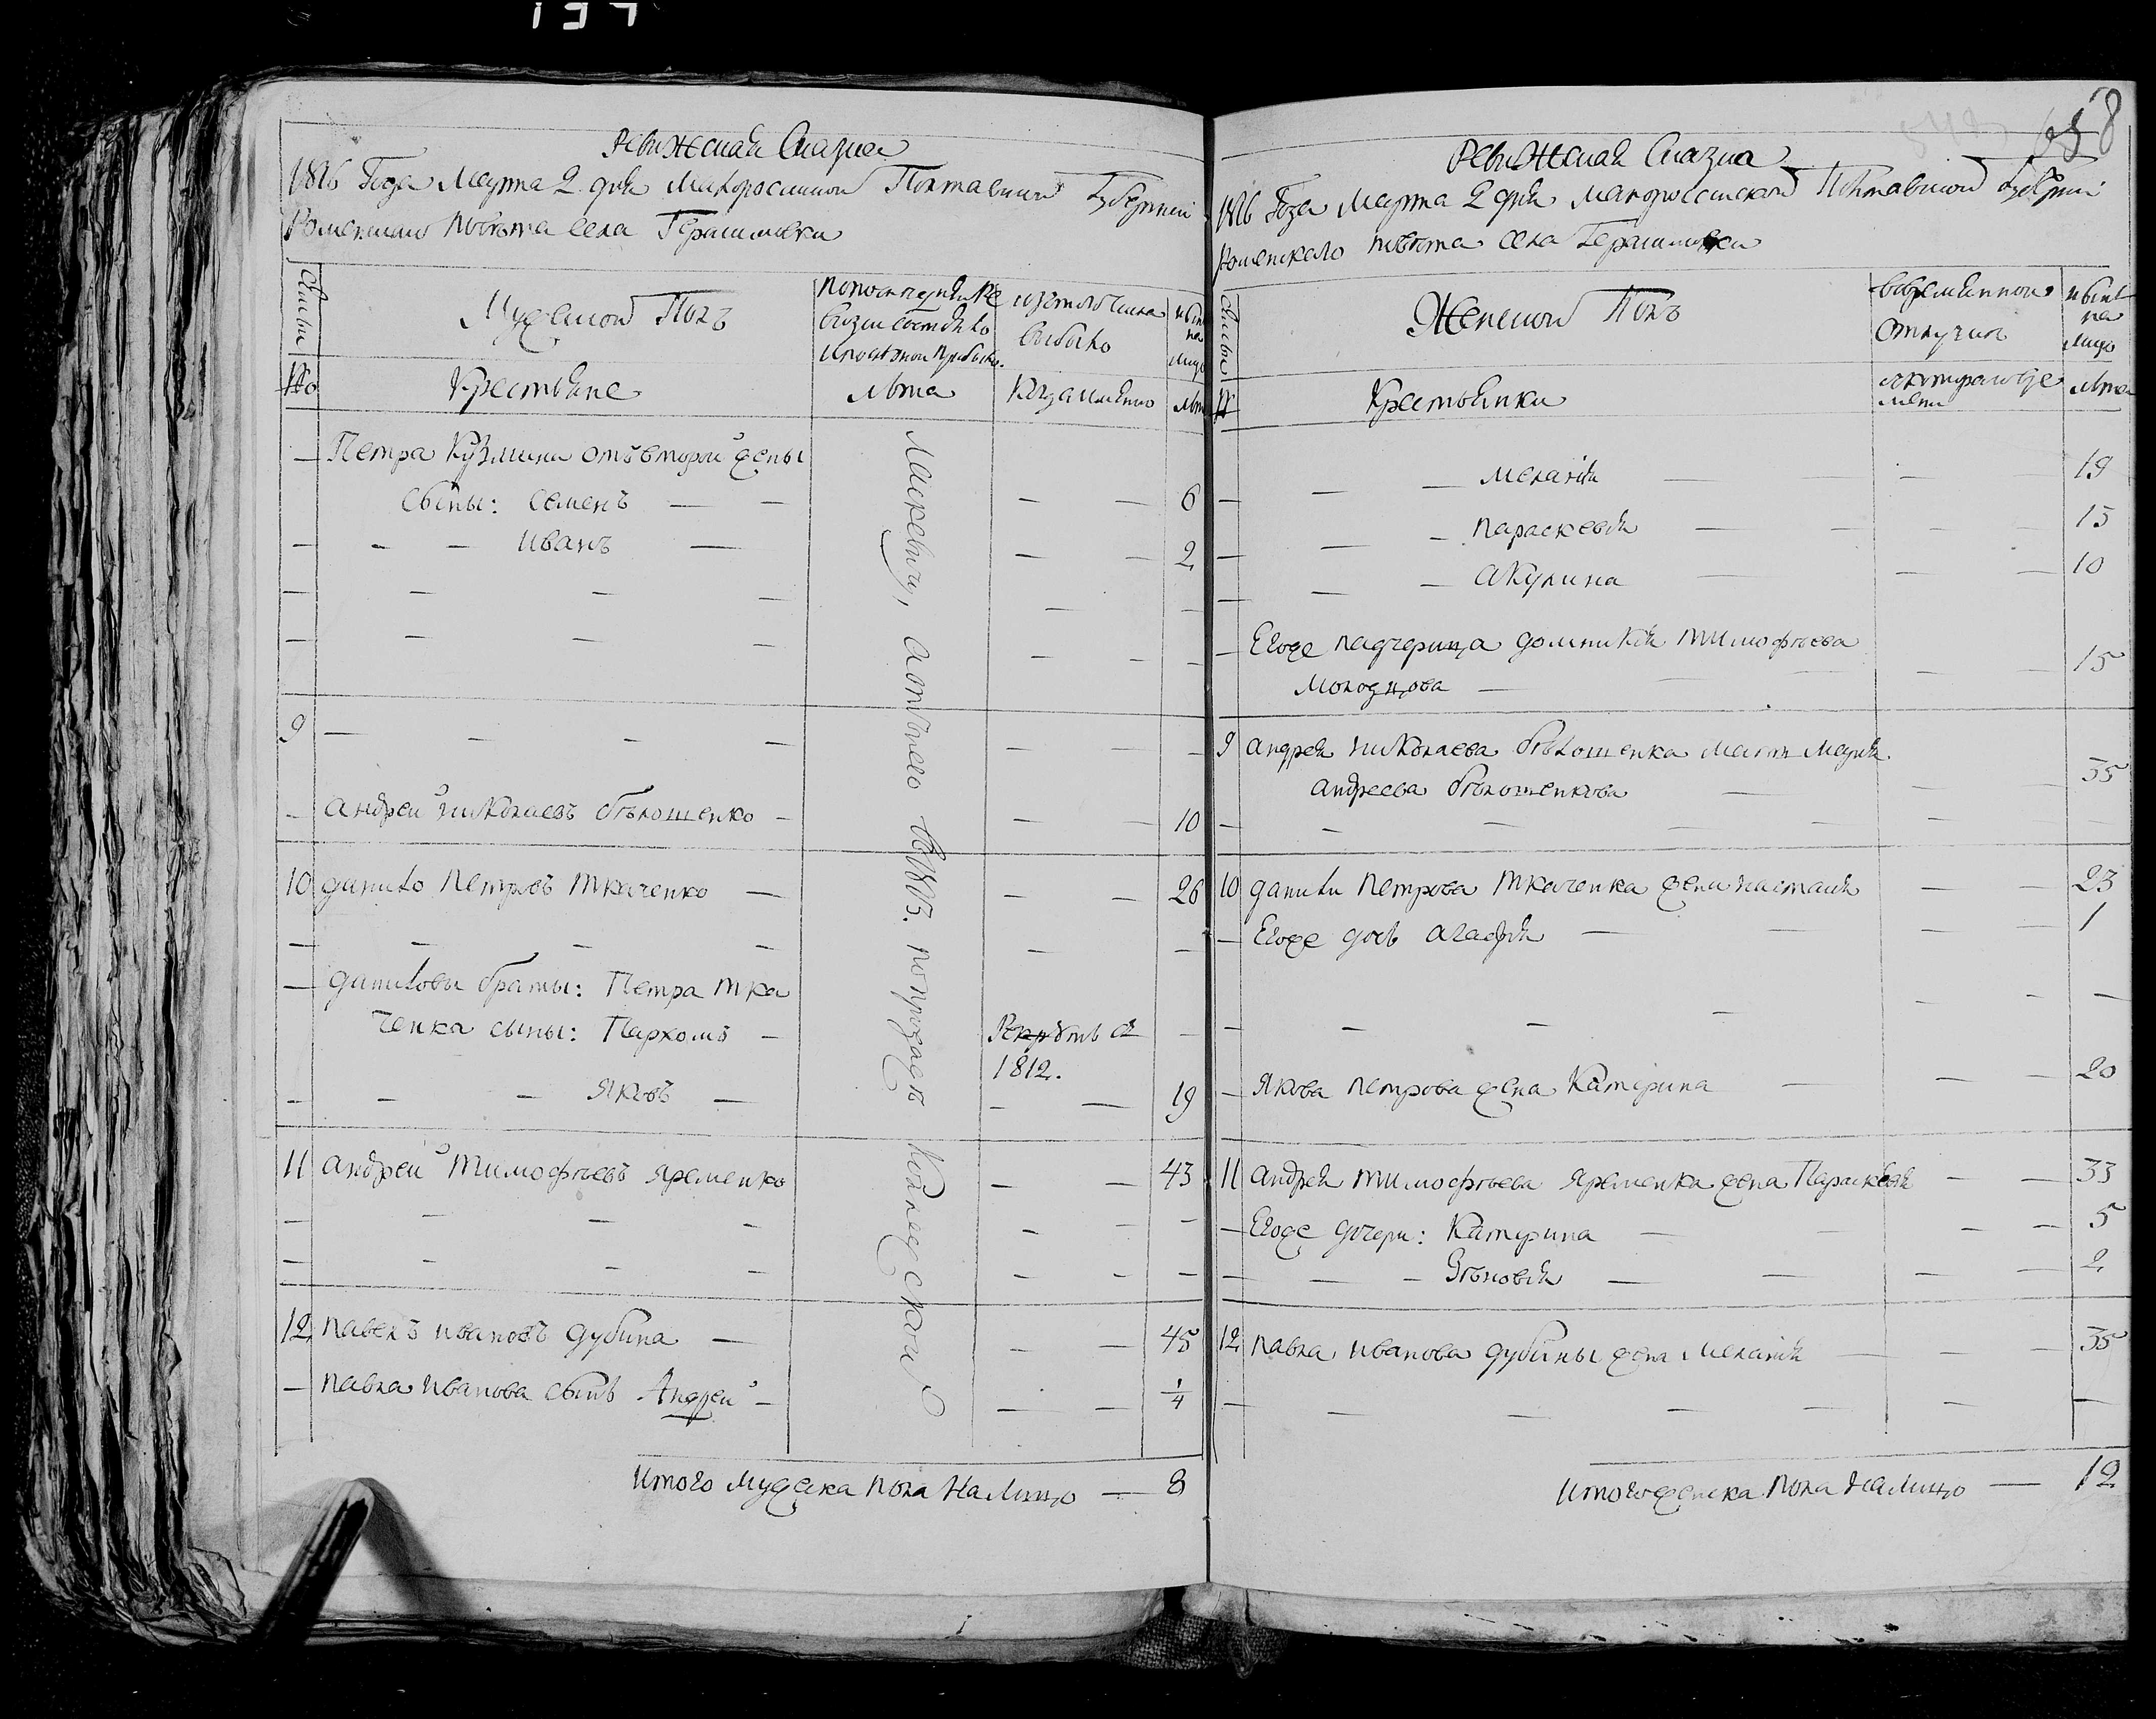 137
Ревижская Сказка
1816 Года Марта 2 дня Малороссийской Полтавской Губернии
Роменского Повѣта села Герасимовки
Семьи
Мужеской Полъ
По последней ревизии состояло и после оной прибыло
Изъ того числа выбыло
Ныне на лицо
№
Крестьяне
лѣта
Когда именно
лѣта
Петра Кузмина отъ второй жены
сыны: Семенъ — — — — 6
Иванъ — — — 2
9
Андрей Николаевъ бѣлошенко — — — 10
10 данило Петровъ Ткаченко — — — 26
даниловы браты: Петра Тка
ченка сыны: Пархомъ — Рекрутъ съ
1812.
Яковъ — — — 19
11 андрей Тимофѣевъ Яременко — — 43
12 павелъ ивановъ дубина — — — 45
павла иванова сынъ Андрей — — — 1/4
Итого мужеска пола на лицо — 8
658
Ревижская Сказка
1816 Года Марта 2 дня Малороссийской Полтавской Губернии
Роменского повѣта села Герасимовки
Семьи
Женской Полъ
Во временной отлучке
Ныне на лицо
№
Крестьянки
с которого времени
лѣта
Меланія — 19
Параскевія — 15
Акулина — 10
Егоже падчерица домникія Тимофѣева
Молодцова — 15
9 андрея Николаева бѣлошенка мать Марія
андреева бѣлошенкова — 35
10 данила Петрова Ткаченка жена настасія — — 23
Егоже дочь агафія — 1
Якова Петрова жена Катерина — — — 20
11 андрея Тимофѣева Яременка жена Параскевія — — 33
Егоже дочери: Катерина — 5
Зѣновія — 2
12 павла иванова дубины жена Меланія — 35
Итого женска пола на лицо — 12